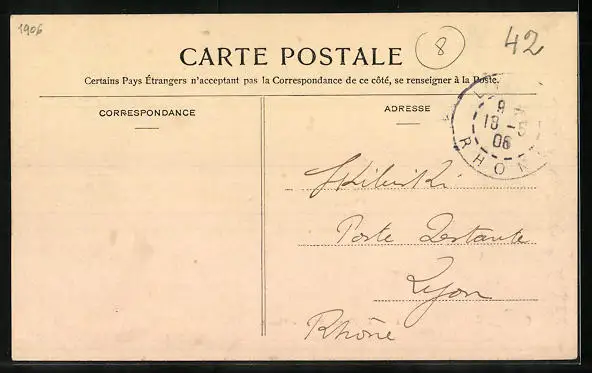 1906
CARTE POSTALE
8
42
Certains Pays Étrangers n'acceptent pas la Correspondance de ce côté, se renseigner à la Poste.
CORRESPONDANCE
ADRESSE
9
18 - 5
06
RHONE
Poste Restante
Lyon
Rhône